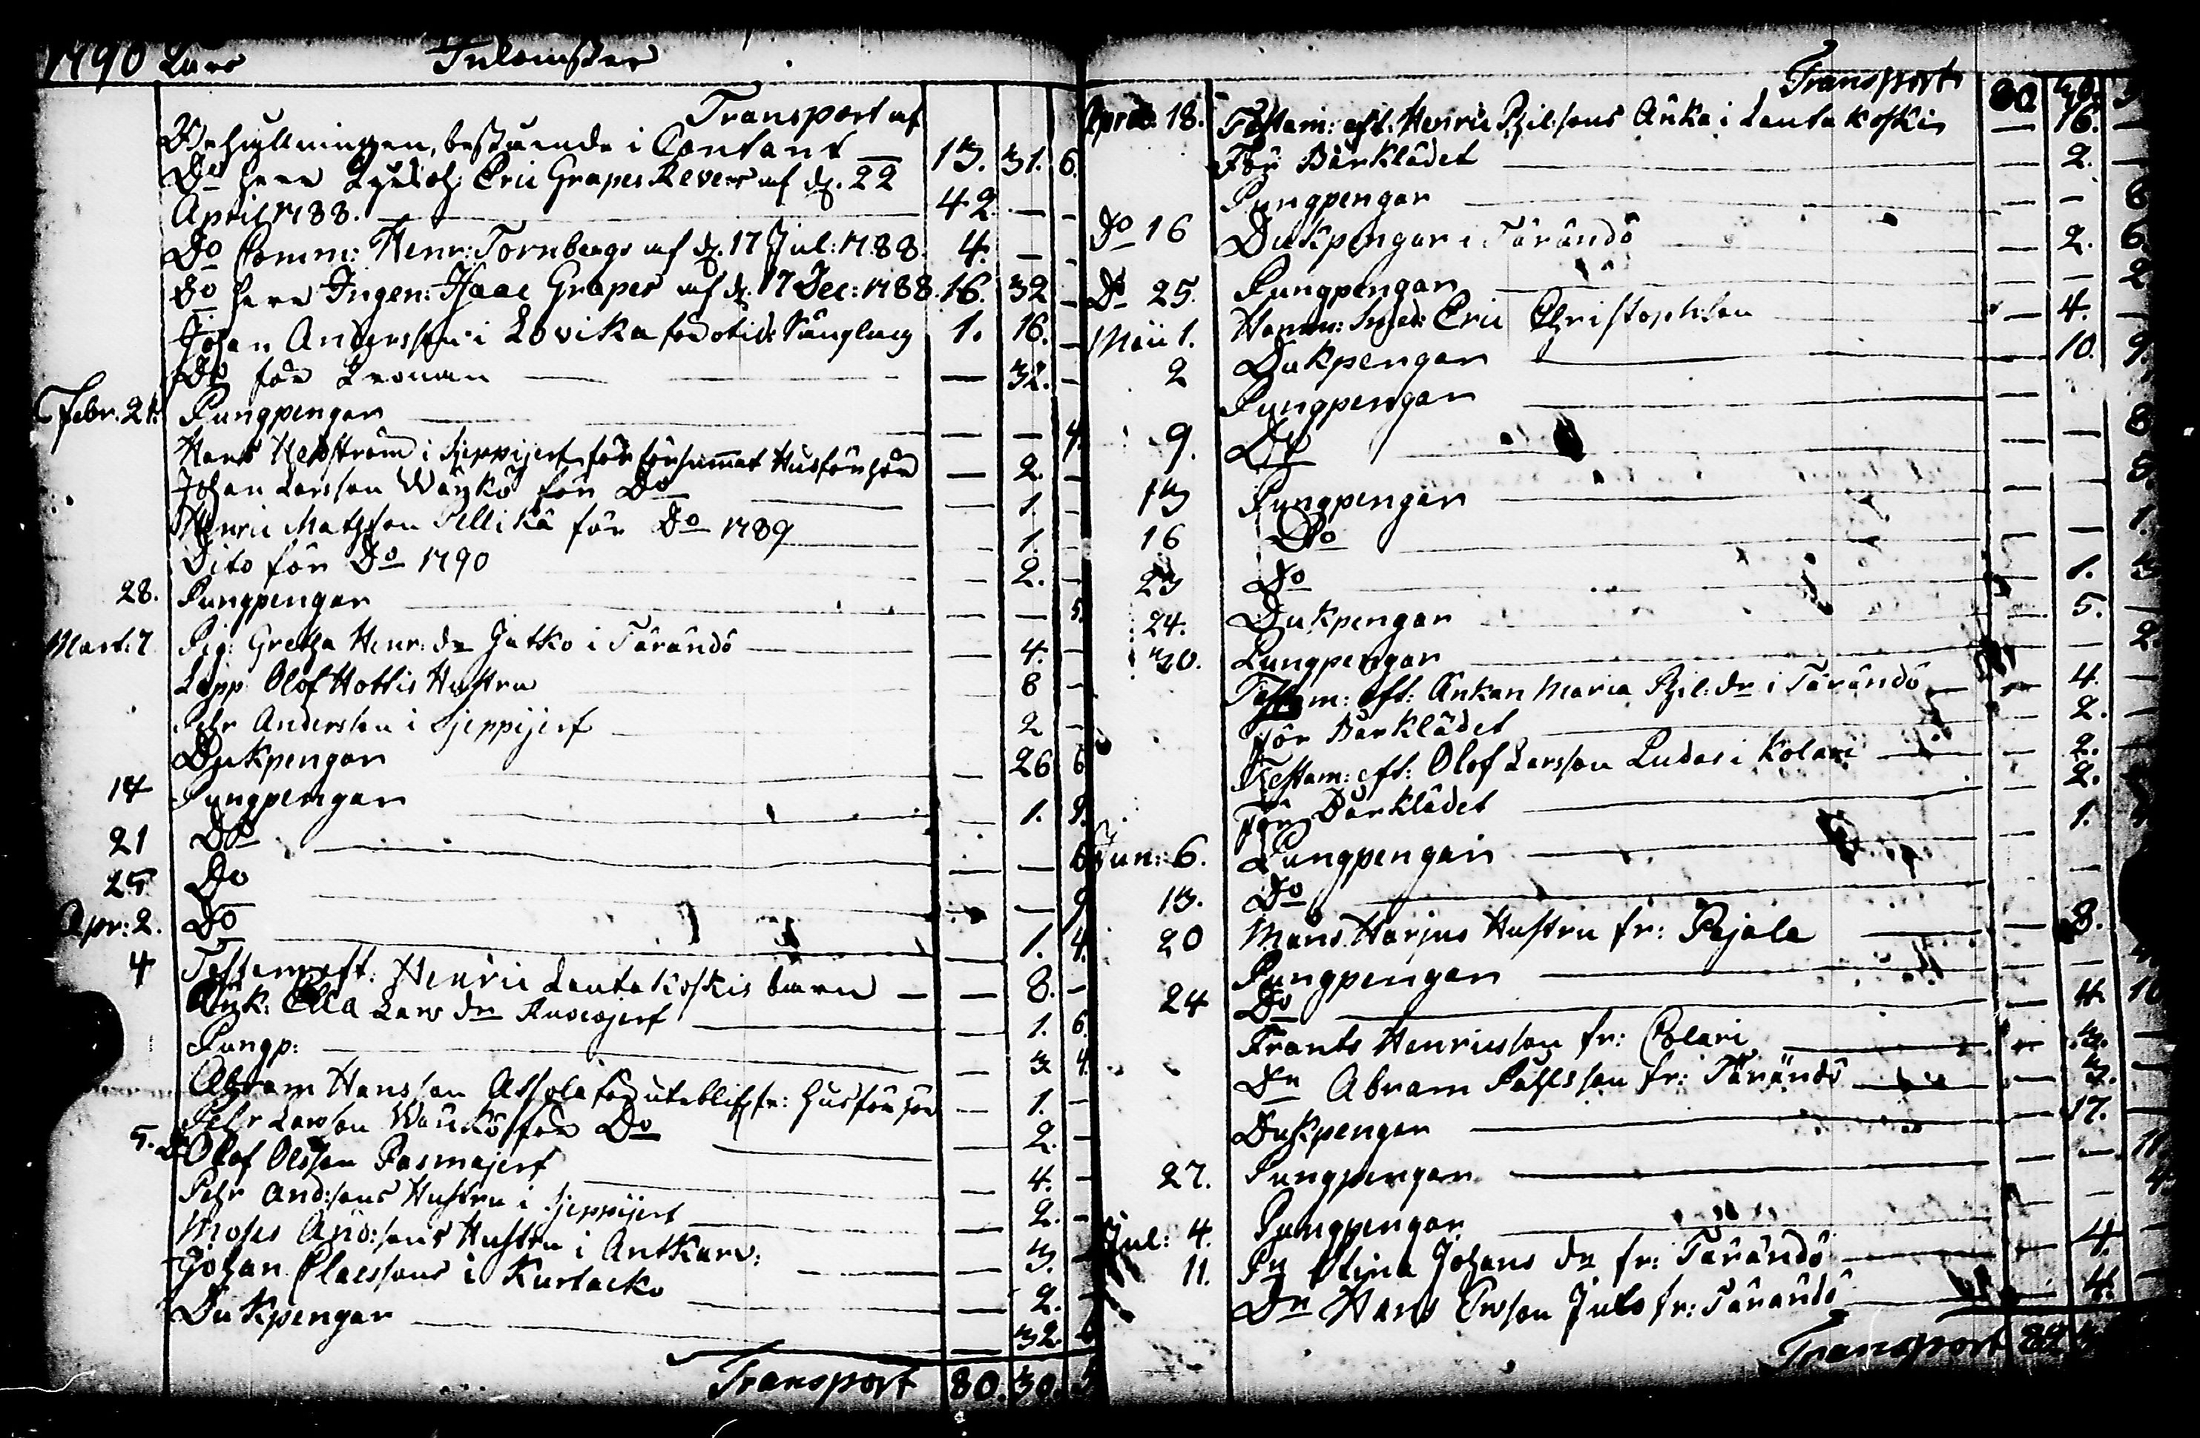 1790 Års Inkomster
Transport af
Behållningen, bestående i Contant 13. 31. 6.
Do herr Eric Grapes Revers af d. 22
April 1788. 42. — -
Do Comm: Henr: Tornbergs af d. 17 Jul: 1788. 4. — -
Do herr Ingen: Isaac Grapes af d. 17 Dec: 1788. 16. 32 -
Johan Andersson i Lovika för otid: Sänglag 1. 16. -
Do för Kronan — 32. -
Febr. 21. Pungpengar — — 4.
Hans Hedström i Sjeppijerf för försummat Husförhör — 2. -
Johan Larsson Wäykö för Do — 1. -
Henric Matzson Pellikä för Do 1789 — 1. -
Dito för Do 1790 — 2. -
28. Pungpengar — — 5.
Mart: 7 Pig: Gretha Henr: dr Jatko i Tärändö — 4. -
Lapp Olof Hottis Hustru 8 -
Pehr Andersson i Sjeppijerf 2 -
Dukpengar — 26 6
14 Pungpengar — 1. 9.
21 Do — — 6
25 Do — — 9
Apr: 2. Do — 1. 4.
4 Testam: eft: Henric Lantakoskis barn — 8. -
Änk: Ella Lars dr — 1. 6.
Pungp: — 3 4.
Abram Hansson för utebliff fr: Husförhör — 1. -
Pehr Larsson Wäykö för Do — 2. -
5. Olof Olsson Pasmajerf — 4. -
Pehr And:sons Hustru i Sjeppijerf — 2. -
Moses And:sons Hustru i — 3. -
Johan Claessons i Kurtacko — 2. -
Dukpengar — 32.
Transport 80. 30.
Transport 80 30.
April 18. Testam: eft: Henric Phil:sons Änka i Lantakoski — 16. —
För Bårklädet — 2. —
Pungpengar — - 6
Do 16 Dukpengar i Tärändö — 2. 6.
Do 25. Pungpengar — — 2
Maii 1. Hamm: Smed: Eric Christophson — 4. —
2 Dukpengar — 10. 9.
Pungpengar 8
9. Do — — 8.
13 Pungpengar — — 1.
16 Do
23 Do — 1.
24. Dukpengar — 5. —
30. Pungpengar — — 2.
Testam: eft: Änkan Maria Phil: dr i Tärändö — 4. —
För Bårklädet — 2. —
Testam: eft: Olof Larsson Ludas i Kolari — 2. —
För Bårklädet — 2.
Jun: 6. Pungpengar — 1.
13. Do
20 Måns Harjus Hustru fr: Pajala — 8.
Pungpengar
24 Do — 4. 10
Frants Henricsson fr: Colari — 3. —
Dr Abram Påhlsson fr: Tärändö
Dukpengar — 17. —
27. Pungpengar — — 11
Jul: 4. Pungpengar — — 4
11. Pig Stina Johans dr fr: Tärändö — 4. —
Dr Hans Ersson Juto fr: Tärändö — 4. —
Transport 82